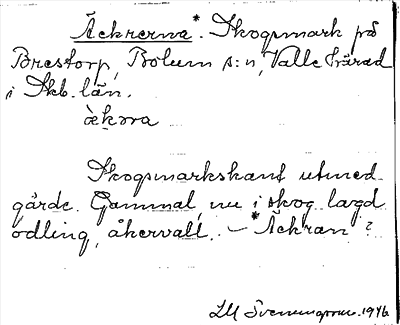 Äckrerna*. Skogsmark på
Brestorp, Bolum s:n, Valle härad
i Skb. län.
Skogsmarkskant utmed
gärde. Gammal, nu i skog lagd
odling, åkervall. – *Äckran ?
1946